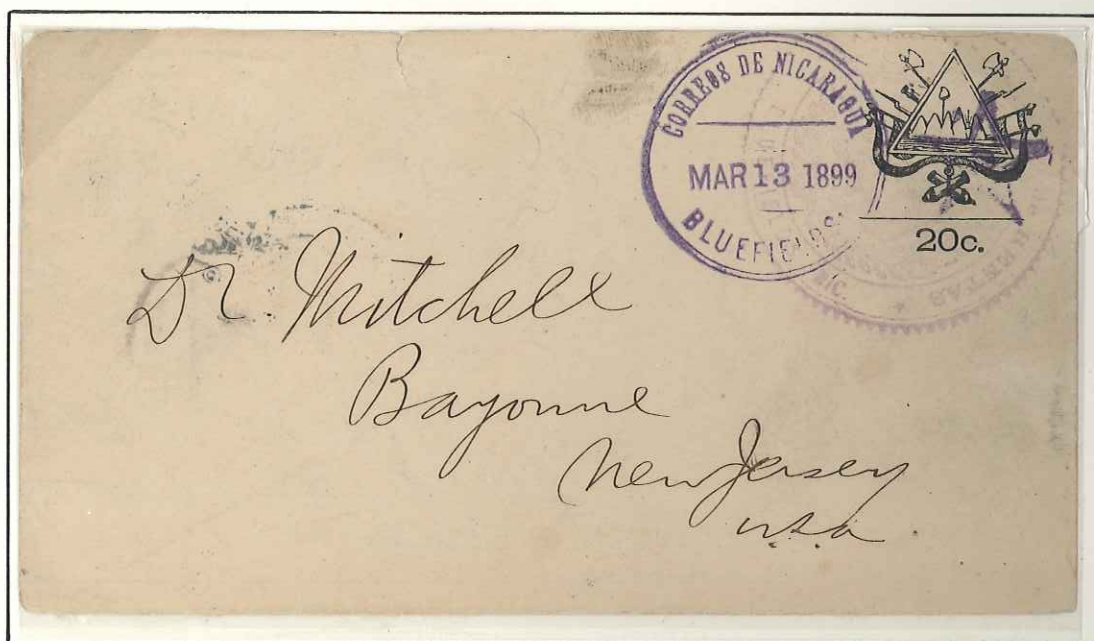 CORREOS DE NICARAGUA
MAR 13 1899
BLUEFIELDS
20c.
Dr Mitchell
Bayonne
New Jersey
usa